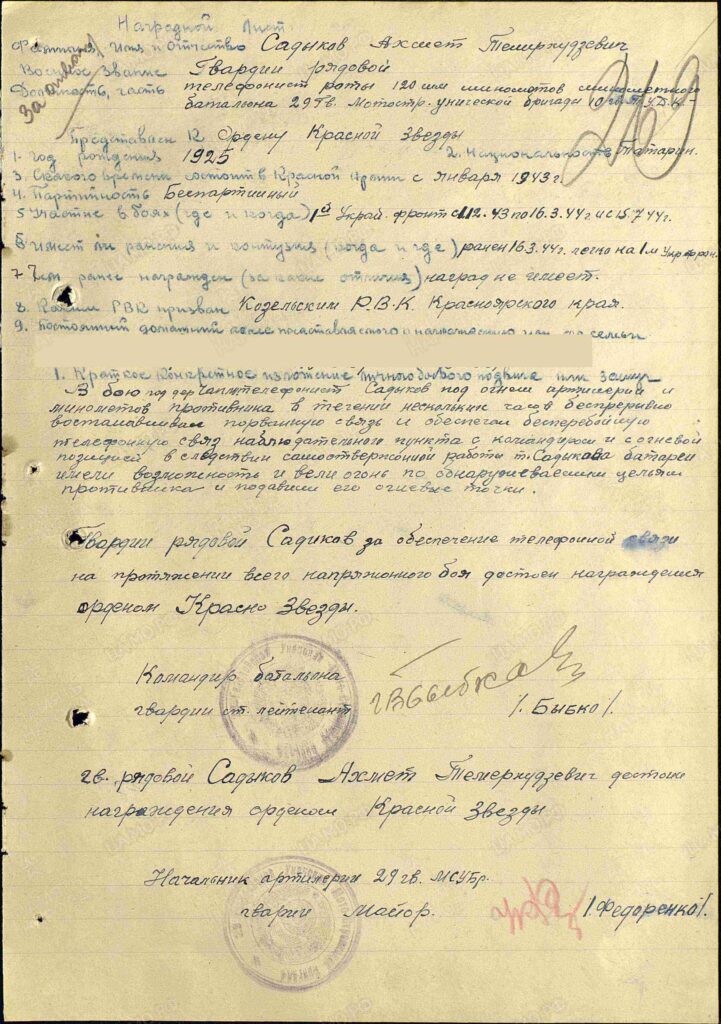 Наградной Лист
Фамилия, Имя и Отчество Садыков Ахмет Темеркудзевич
Военое звание Гвардии рядовой
Должность, часть телефонист роты 120 мм минометов минометного
За отвагу
батальона 29 Гв. Мотостр. Унической бригады 10 гв.
Представлен к Ордену Красной Звезды
1. год рождения 1925 2. Национальность Татарин.
3. С какого времени состоит в Красной Армии с января 1943 г.
4. Партийность Беспартийный
5 Участие в боях (где и когда) 1й Украй. фронт с 1.12.43 по 16.3.44 г. и с 15.7.44 г.
6 имеет ли ранения и контузия (когда и где) ранен 16.3.44 г. легко на 1м Укр. фрон.
7 Чем ранее награжден (за какие отличия) наград не имеет.
8. Каким РВК призван Козельским Р.В.К. Красноярского края.
9. Постоянный домашний адрес
1. Краткое конкретное изложение личного боевого подвига или заслуг
В бою под дер телефонист Садыков под огнем артилерии и
минометов противника в течении нескольких часов беспрерывно
востанавливал порванную связь и обеспечил бесперебойную
телефонную связ наблюдательного пункта с командиром и с огневой
позицией в следствии самоотверженной работы т. Садыкова батареи
имели возможность и вели огонь по обнаруживаемым цельям
противника и подавили его огневые точки.
Гвардии рядовой Садиков за обеспечение телефонной связи
на протяжении всего напряжонного боя достоен награждения
орденом Красно Звезды.
Командир батальона
гвардии ст. лейтенант /. Быбко /.
гв. рядовой Садыков Ахмет Темеркудзевич достоин
награждения орденом Красной Звезды
Начальник артилерии 29 гв. МСУБр.
гварии Майор. /. Федоренко /.